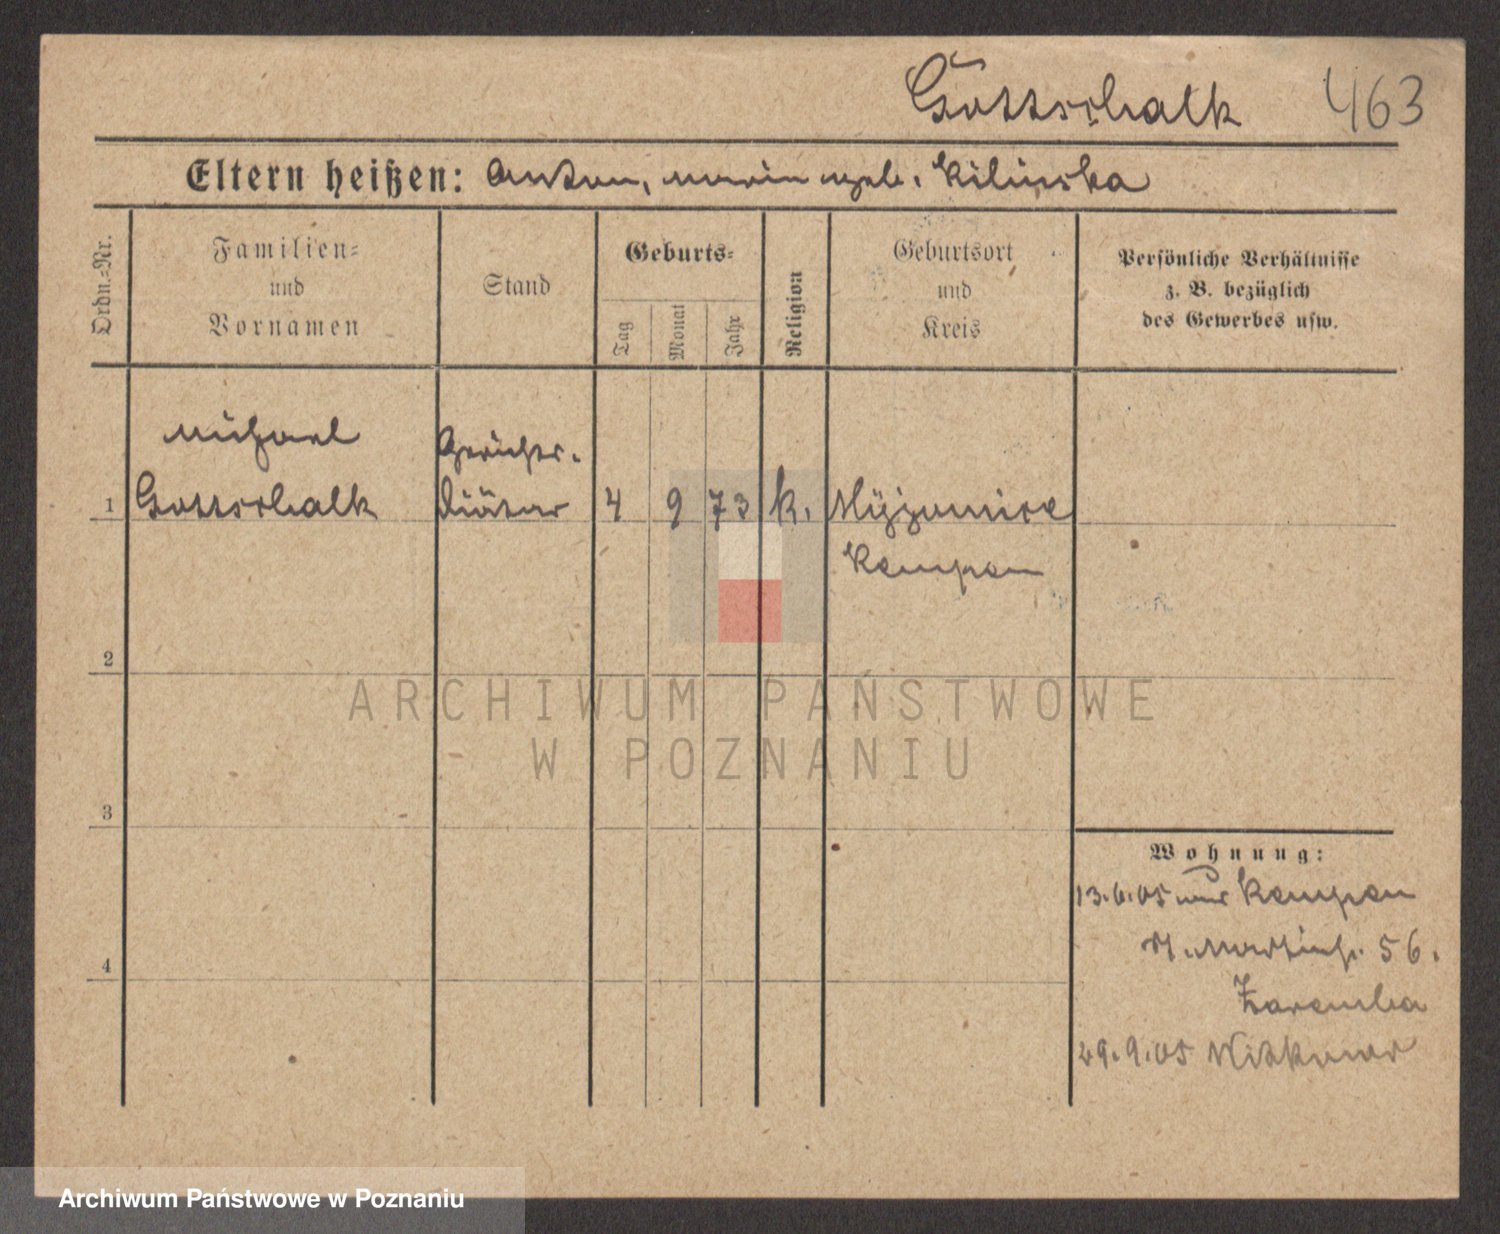 Gottschalk 463
Eltern heißen: Anton, Maria geb. Kilinska
Ordn.-Nr.
Familien-
und
Vornamen
Stand
Geburts-
Tag
Monat
Jahr
Religion
Geburtsort
und
Kreis
Persönliche Verhältnisse
z. B. bezüglich
des Gewerbes usw.
Michael
Gerichts-
1 Gottschalk diätar 4 9 73 k. Myjomice
Kempen
2
ARCHIWUM PAŃSTWOWE
W POZNANIU
3
Wohnung:
13.6.05 aus Kempen
St. Martinstr. 56.
Zaremba
4
29.9.05 Witkowo
Archiwum Państwowe w Poznaniu